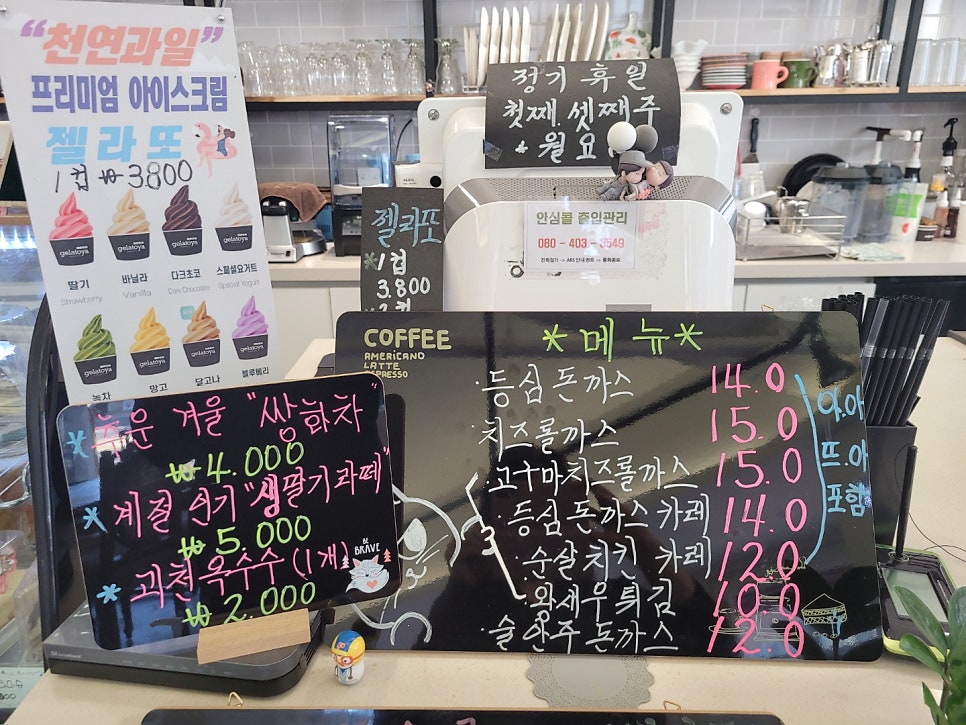 "천연과일"
프리미엄 아이스크림
젤라또
1컵 ₩3800
gelatoya
gelatoya
gelatoya
gelatoya
딸기
바닐라
다크초코
스페셜요거트
Strawberry
Vanilla
Dark Chocolate
Special Yogurt
gelatoya
gelatoya
gelatoya
gelatoya
녹차
망고
달고나
블루베리
정기휴일
첫째.셋째주
*월요
젤라또
*1컵
3.800
안심콜 출입관리
080 - 403 - 3549
*추운 겨울 "쌍화차"
₩4.000
*계절 선기 "생딸기라떼"
₩5.000
*과천옥수수 (1개)
₩2.000
BE
BRAVE
COFFEE
AMERICANO
LATTE
ESPRESSO
*메뉴*
·등심돈까스 14.0
·치즈롤까스 15.0
·고구마치즈롤까스 15.0
·등심돈까스카레 14.0
·순살치킨 카레 12.0
·왕새우튀김 10.0
·술안주돈까스 12.0
아.아
뜨.아
포함